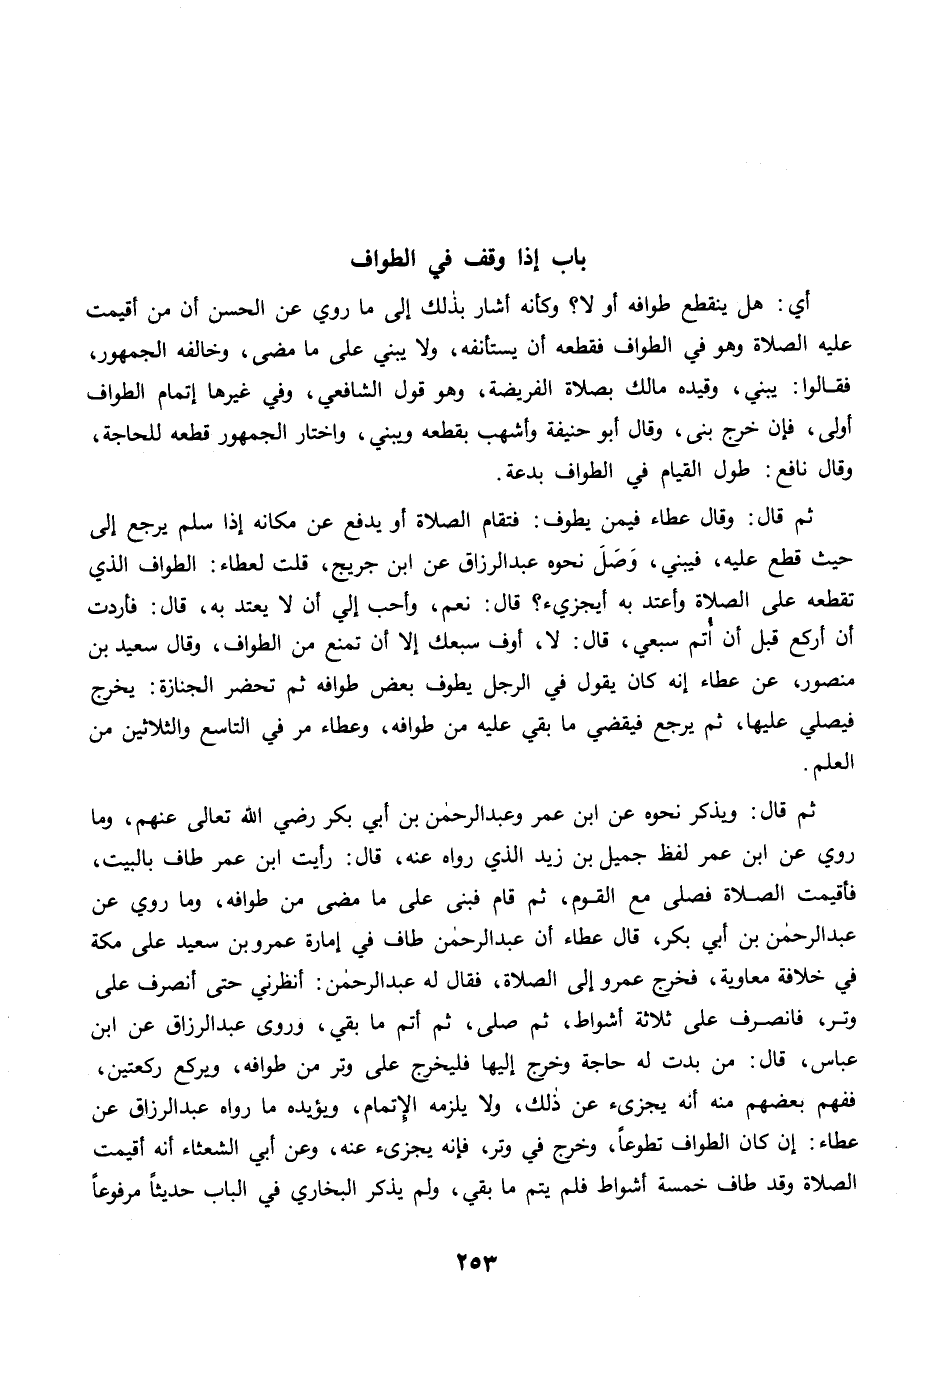 باب إذا وقف في الطواف
أي: هل ينقطع طوافه أو لا؟ وكأنه أشار بذٰلك إلى ما روي عن الحسن أن من أقيمت
عليه الصلاة وهو في الطواف فقطعه أن يستأنفه، ولا يبني على ما مضى، وخالفه الجمهور،
فقالوا: يبني، وقيده مالك بصلاة الفريضة، وهو قول الشافعي، وفي غيرها إتمام الطواف
أولى، فإن خرج بنى، وقال أبو حنيفة وأشهب بقطعه ويبني، واختار الجمهور قطعه للحاجة،
وقال نافع: طول القيام في الطواف بدعة.
ثم قال: وقال عطاء فيمن يطوف: فتقام الصلاة أو يدفع عن مكانه إذا سلم يرجع إلى
حيث قطع عليه، فيبني، وَصَلَ نحوه عبدالرزاق عن ابن جريج، قلت لعطاء: الطواف الذي
تقطعه على الصلاة وأعتد به أيجزيء؟ قال: نعم، وأحب إلي أن لا يعتد به، قال: فأردت
أن أركع قبل أن أُتم سبعي، قال: لا، أوف سبعك إلا أن تمنع من الطواف، وقال سعيد بن
منصور، عن عطاء إنه كان يقول في الرجل يطوف بعض طوافه ثم تحضر الجنازة: يخرج
فيصلي عليها، ثم يرجع فيقضي ما بقي عليه من طوافه، وعطاء مر في التاسع والثلاثين من
العلم.
ثم قال: ويذكر نحوه عن ابن عمر وعبدالرحمٰن بن أبي بكر رضي الله تعالى عنهم، وما
روي عن ابن عمر لفظ جميل بن زيد الذي رواه عنه، قال: رأيت ابن عمر طاف بالبيت،
فأقيمت الصلاة فصلى مع القوم، ثم قام فبنى على ما مضى من طوافه، وما روي عن
عبدالرحمٰن بن أبي بكر، قال عطاء أن عبدالرحمٰن طاف في إمارة عمرو بن سعيد على مكة
في خلافة معاوية، فخرج عمرو إلى الصلاة، فقال له عبدالرحمٰن: أنظرني حتى أنصرف على
وتر، فانصرف على ثلاثة أشواط، ثم صلى، ثم أتم ما بقي، وروى عبدالرزاق عن ابن
عباس، قال: من بدت له حاجة وخرج إليها فليخرج على وتر من طوافه، ويركع ركعتين،
ففهم بعضهم منه أنه يجزىء عن ذٰلك، ولا يلزمه الإتمام، ويؤيده ما رواه عبدالرزاق عن
عطاء: إن كان الطواف تطوعاً، وخرج في وتر، فإنه يجزىء عنه، وعن أبي الشعثاء أنه أقيمت
الصلاة وقد طاف خمسة أشواط فلم يتم ما بقي، ولم يذكر البخاري في الباب حديثاً مرفوعاً
٢٥٣